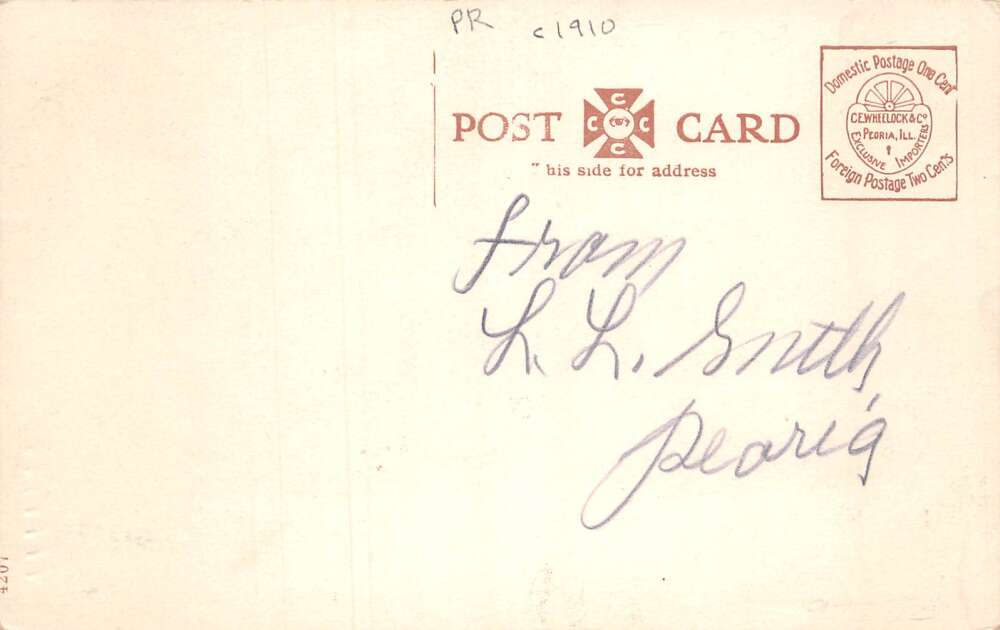 PR c1910
POST CARD
C
C C
C
his side for address
Domestic Postage One Cent
C.E. WHEELOCK & Co
PEORIA, ILL.
EXCLUSIVE IMPORTERS
Foreign Postage Two Cents
From
L. L. Smith,
Peoria
4207